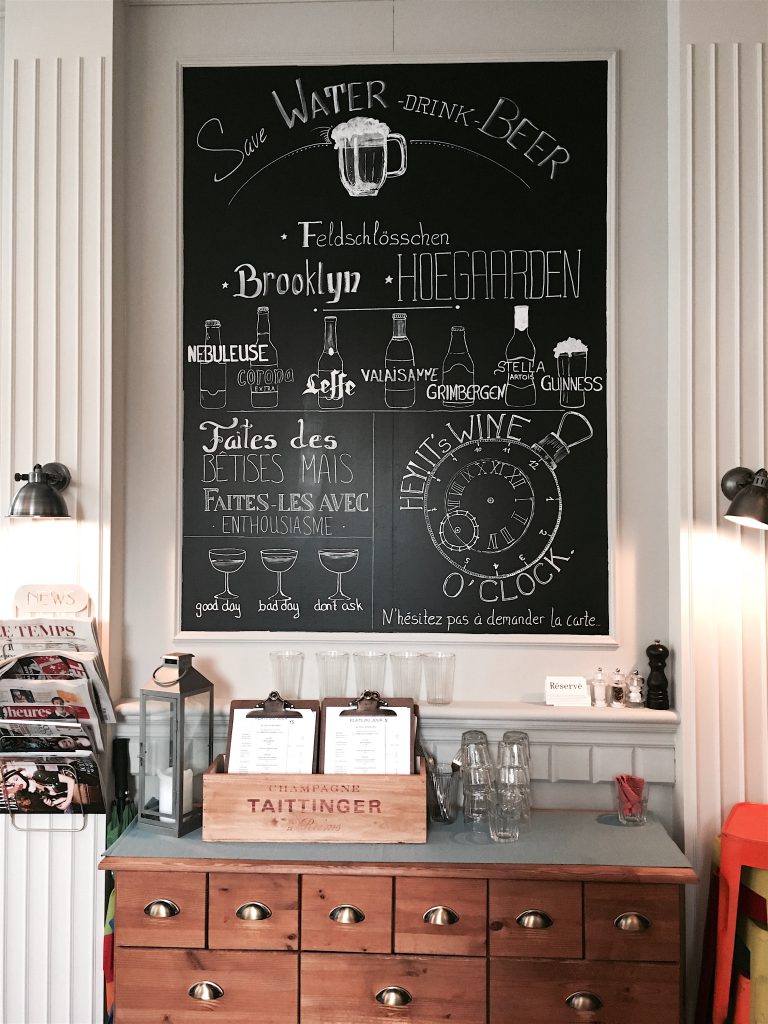 Save WATER -DRINK- BEER
Feldschlösschen
Brooklyn HOEGAARDEN
NEBULEUSE
corona
EXTRA
Leffe
VALAISANNE
GRIMBERGEN
STELLA
ARTOIS
GUINNESS
Faites des
BÊTISES MAIS
FAITES-LES AVEC
· ENTHOUSIASME ·
good day bad day don't ask
HEY! IT'S WINE
O'CLOCK.
N'hésitez pas à demander la carte..
NEWS
LE TEMPS
heures
Réservé
PLATS DU JOUR
PLATS DU JOUR
CHAMPAGNE
TAITTINGER
à Reims